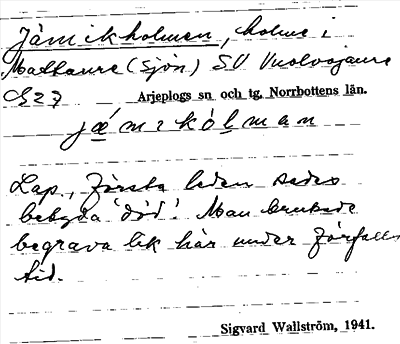 Jämikholmen, holme i
Mattaure (sjön) SV Vuolvojaure
C827
Arjeplogs sn och tg, Norrbottens län.
Lap., första leden sades
betyda 'död'. Man brukade
begrava lik här under förfalls
tid.
Sigvard Wallström, 1941.